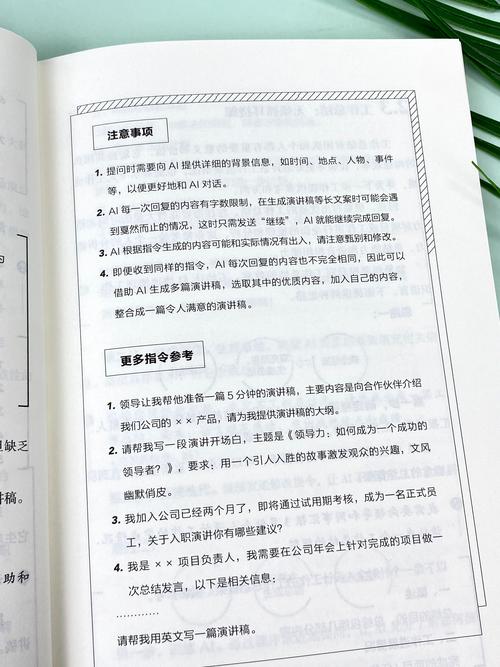 注意事项
1. 提问时需要向 AI 提供详细的背景信息，如时间、地点、人物、事件
等，以便更好地和 AI 对话。
2. AI 每一次回复的内容有字数限制，在生成演讲稿等长文案时可能会遇
到戛然而止的情况，这时只需发送“继续”，AI 就能继续完成回复。
3. AI 根据指令生成的内容可能和实际情况有出入，请注意甄别和修改。
4. 即便收到同样的指令，AI 每次回复的内容也不完全相同，因此可以
借助 AI 生成多篇演讲稿，选取其中的优质内容，加入自己的内容，
整合成一篇令人满意的演讲稿。
更多指令参考
1. 领导让我帮他准备一篇 5 分钟的演讲稿，主要内容是向合作伙伴介绍
我们公司的 ×× 产品，请为我提供演讲稿的大纲。
2. 请帮我写一段演讲开场白，主题是《领导力：如何成为一个成功的
领导者？》，要求：用一个引人入胜的故事激发观众的兴趣，文风
幽默俏皮。
3. 我加入公司已经两个月了，即将通过试用期考核，成为一名正式员
工，关于入职演讲你有哪些建议？
4. 我是 ×× 项目负责人，我需要在公司年会上针对完成的项目做一
次总结发言，以下是相关信息：
…………
请帮我用英文写一篇演讲稿。
但缺乏
讲稿。
助和